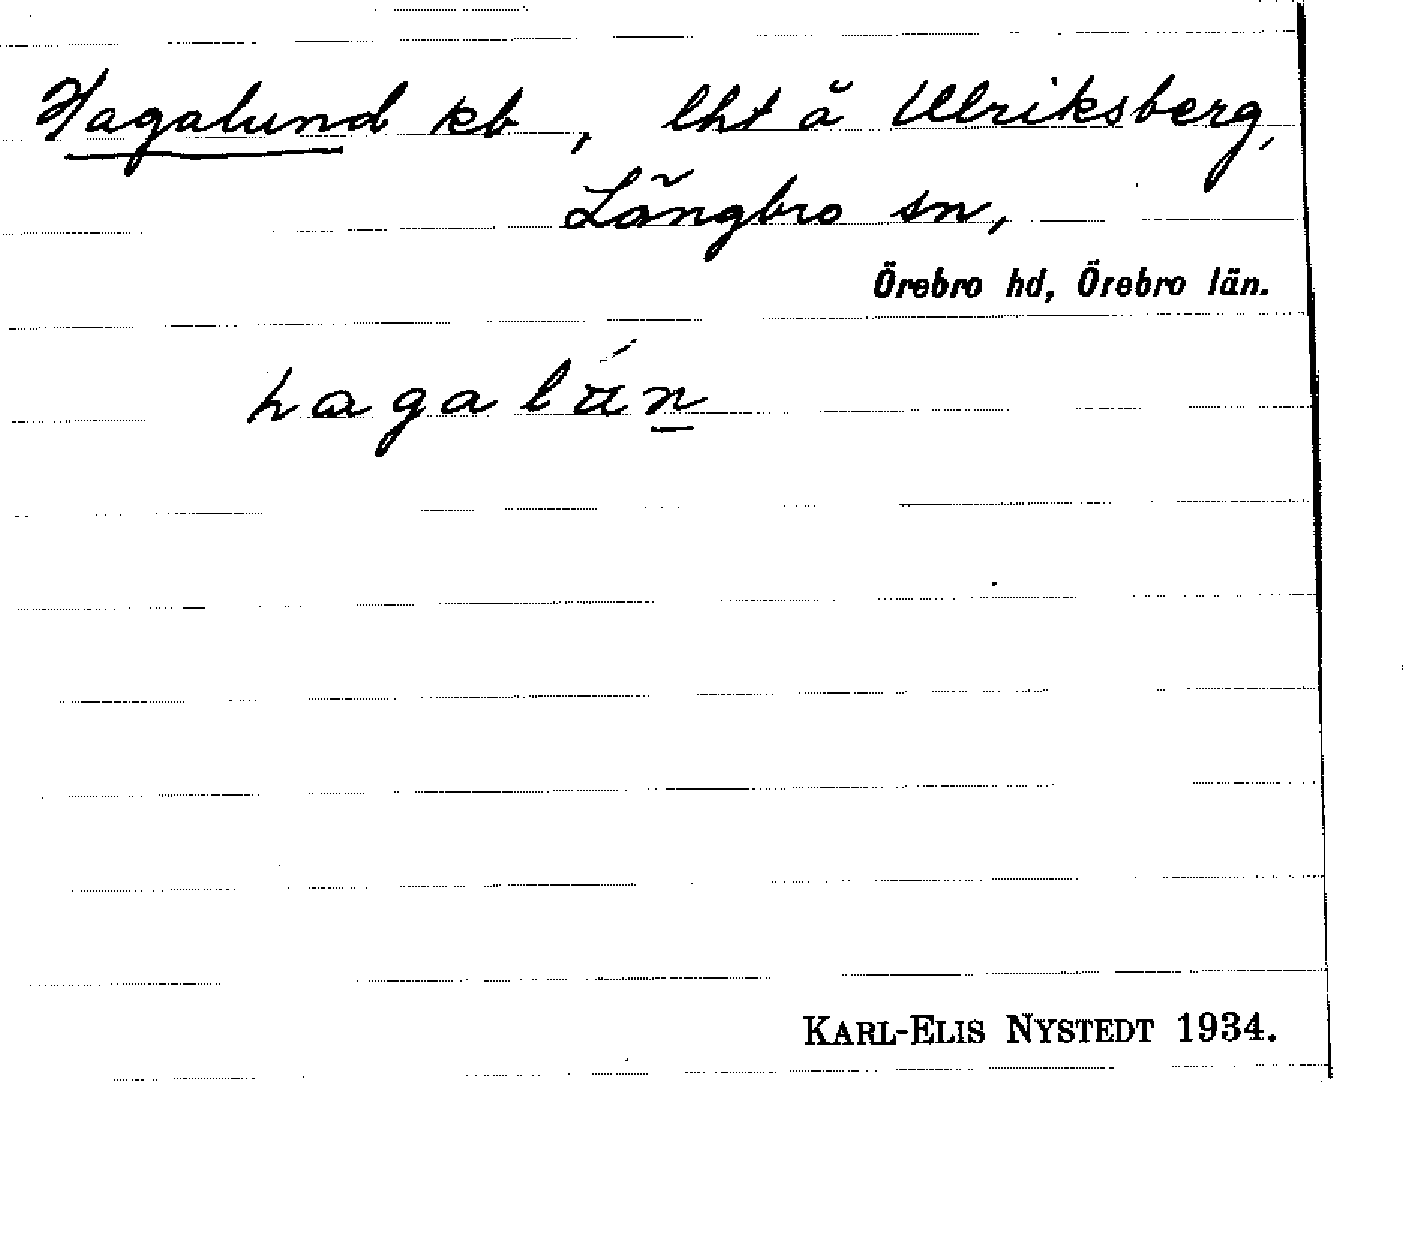 Hagalund kb, lht å Ulriksberg,
Långbro sn,
Örebro hd, Örebro län.
KARL-ELIS NYSTEDT 1934.